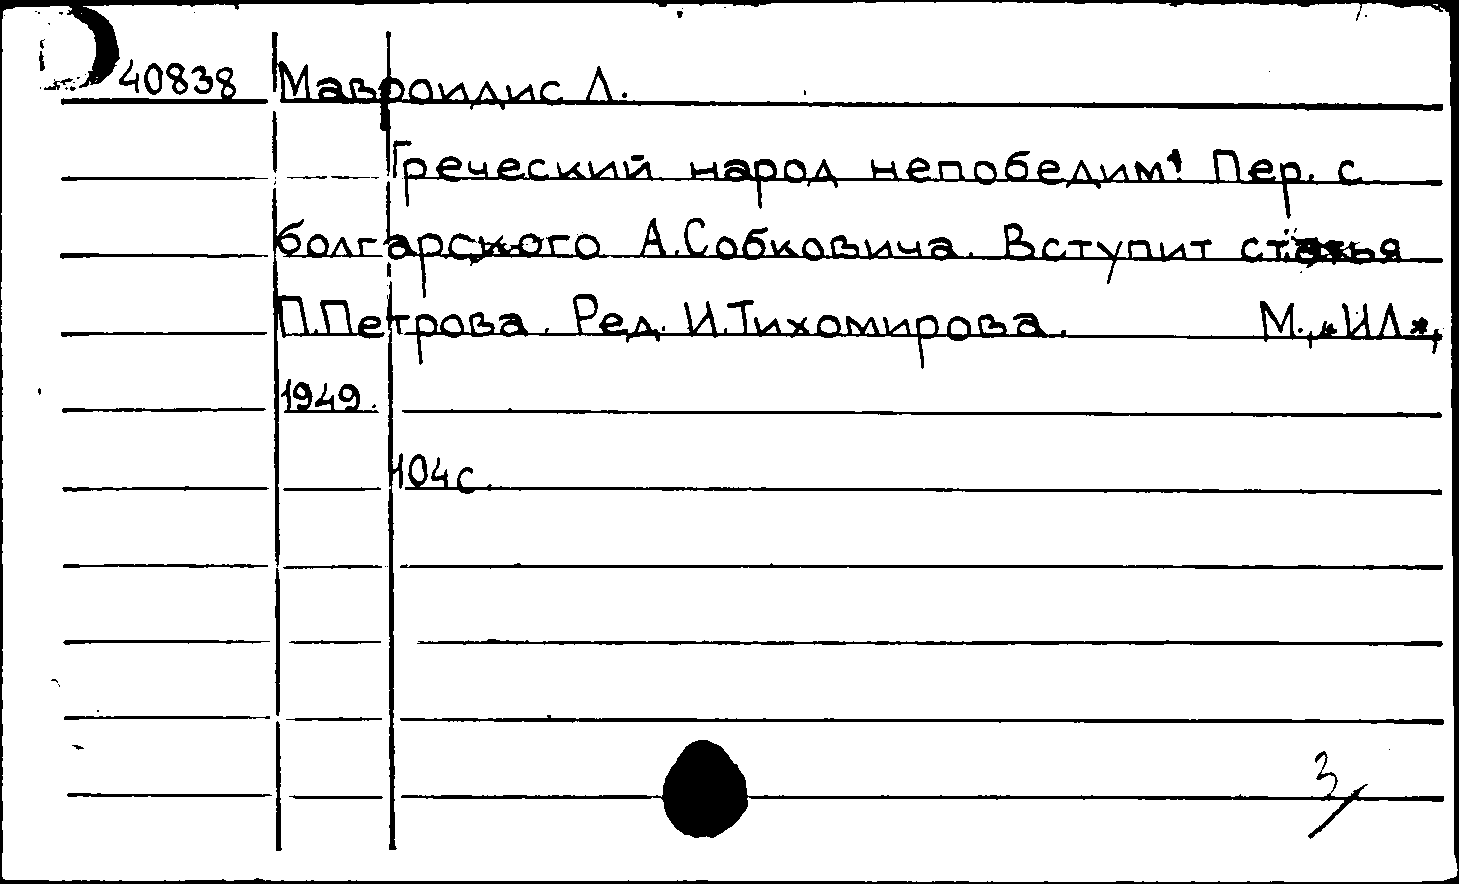 40838 Мавроидис Л.
Греческий народ непобедим! Пер. с
болгарского А.Собковича. Вступит статья
П.Петрова. Ред. И.Тихомирова. М., «ИЛ»,
1949.
104 с.
3/